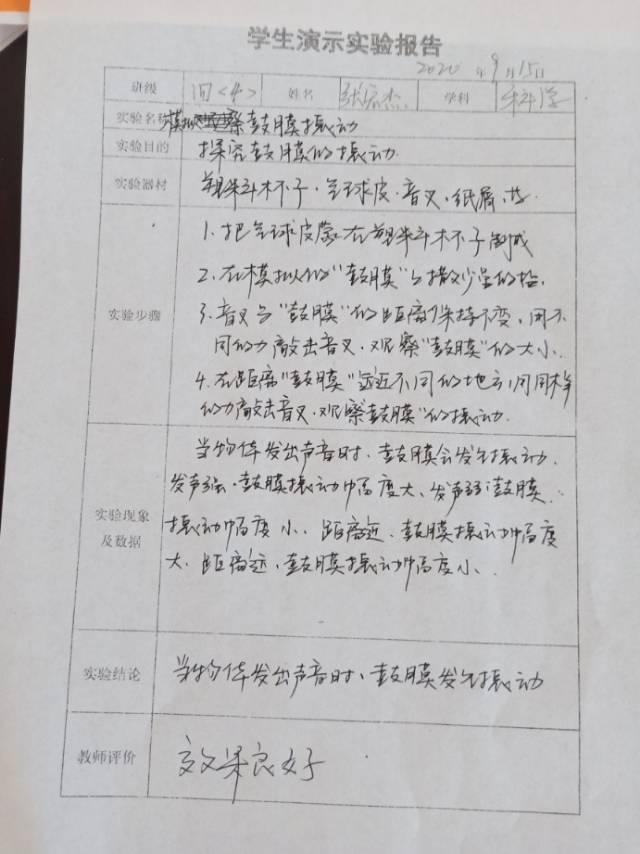 学生演示实验报告
2020年9月15日
班级 四<4> 姓名 张宏杰 学科 科学
实验名称 模拟察鼓膜振动
实验目的 探究鼓膜的振动.
实验器材 塑料杯子、气球皮、音叉、纸屑、
1.把气球皮蒙在塑料杯子制成
2.在模拟的"鼓膜"上撒少量的
实验步骤 3.音叉与"鼓膜"的距离保持不变、用不
同的力敲击音叉、观察"鼓膜"的大小.
4.在距离"鼓膜"远近不同的地方用同样
的力敲击音叉、观察鼓膜"的振动.
当物体发出声音时、鼓膜会发生振动.
发声强、鼓膜振动幅度大、发声弱鼓膜
实验现象及数据 振动幅度小、距离近、鼓膜振动幅度
大、距离远、鼓膜振动幅度小、
实验结论 当物体发出声音时、鼓膜发生振动
教师评价 效果良好